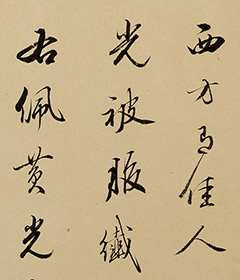 西方有佳人
光被服纖
右佩黃光